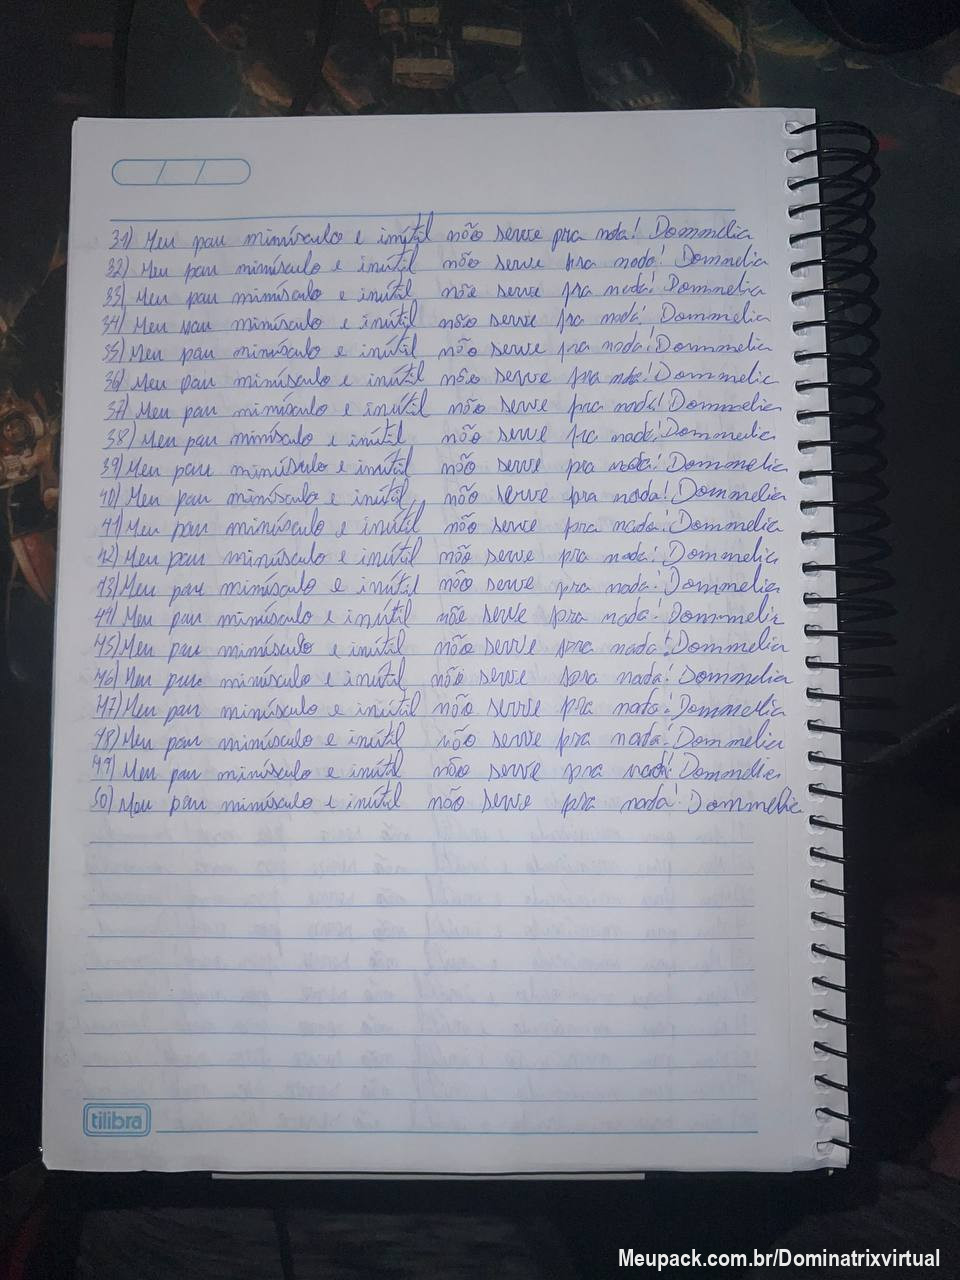 31) Meu pau minúsculo e inútil não serve pra nada! Dommelia
32) Meu pau minúsculo e inútil não serve pra nada! Dommelia
33) Meu pau minúsculo e inútil não serve pra nada! Dommelia
34) Meu pau minúsculo e inútil não serve pra nada! Dommelia
35) Meu pau minúsculo e inútil não serve pra nada! Dommelia
36) Meu pau minúsculo e inútil não serve pra nada! Dommelia
37) Meu pau minúsculo e inútil não serve pra nada! Dommelia
38) Meu pau minúsculo e inútil não serve pra nada! Dommelia
39) Meu pau minúsculo e inútil não serve pra nada! Dommelia
40) Meu pau minúsculo e inútil, não serve pra nada! Dommelia
41) Meu pau minúsculo e inútil não serve pra nada! Dommelia
42) Meu pau minúsculo e inútil não serve pra nada! Dommelia
43) Meu pau minúsculo e inútil não serve pra nada! Dommelia
44) Meu pau minúsculo e inútil não serve pra nada! Dommelia
45) Meu pau minúsculo e inútil não serve pra nada! Dommelia
46) Meu pau minúsculo e inútil não serve pra nada! Dommelia
47) Meu pau minúsculo e inútil não serve pra nada! Dommelia
48) Meu pau minúsculo e inútil não serve pra nada! Dommelia
49) Meu pau minúsculo e inútil não serve pra nada! Dommelia
50) Meu pau minúsculo e inútil não serve pra nada! Dommelia
tilibra
Meupack.com.br/Dominatrixvirtual